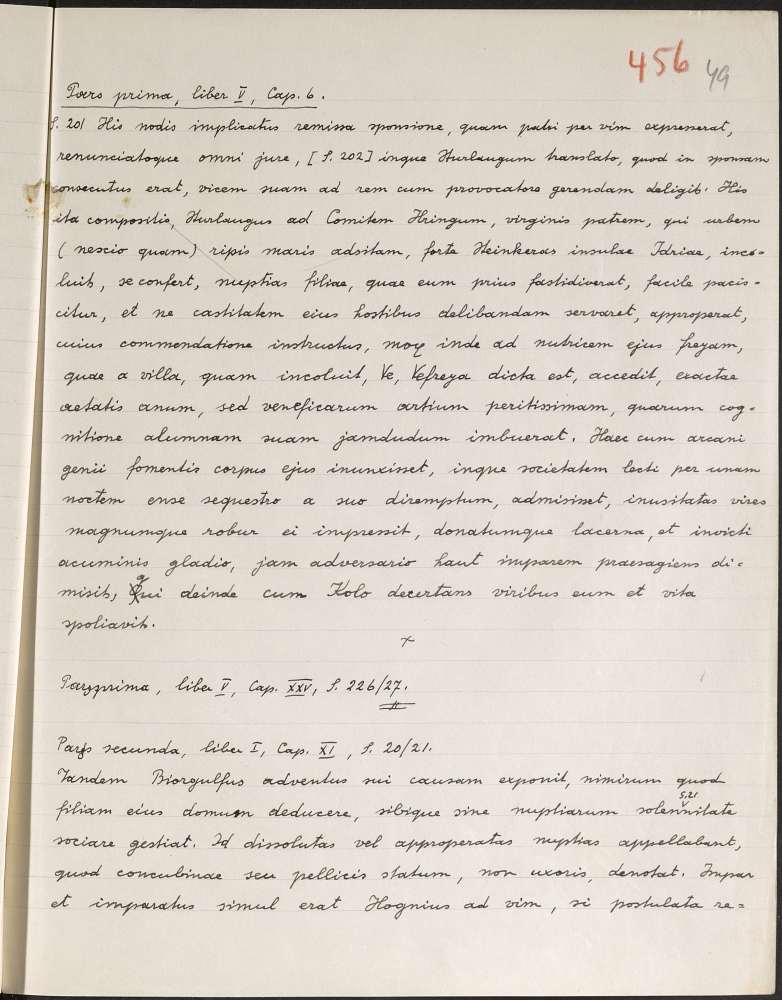 456 49
Pars prima, liber V, Cap. 6.
S. 201 His nodis implicatus remissa sponsione, quam patri per vim expresserat,
renunciatoque omni jure, [S. 202] inque Sturlaugum translato, quod in sponsam
consecutus erat, vicem suam ad rem cum provocatore gerendam deligit. His
ita compositis, Sturlaugus ad Comitem Hringum, virginis patrem, qui urbem
(nescio quam) ripis maris adsitam, forte Steinkeras insulae Idriae, inco-
luit, se confert, nuptias filiae, quae eum prius fastidiverat, facile pacis-
citur, et ne castitatem eius hostibus delibandam servaret, approperat,
cuius commendatione instructus, mox inde ad nutricem ejus freyam,
quae a villa, quam incoluit, Ve, Vefreya dicta est, accedit, exactae
aetatis anum, sed veneficarum artium peritissimam, quarum cog-
nitione alumnam suam jamdudum imbuerat. Haec cum arcani
genii fomentis corpus ejus inunxisset, inque societatem lecti per unam
noctem ense sequestro a suo diremptum, admisisset, inusitatas vires
magnumque robur ei impressit, donatumque lacerna, et invicti
acuminis gladio, jam adversario haut imparem praesagiens di-
misit, qui deinde cum Kolo decertans viribus eum et vita
spoliavit.
x
Pars prima, liber V, Cap. XXV, S. 226/27.
Pars secunda, liber I, Cap. XI, S. 20/21.
Tandem Biorgulfus adventus sui causam exponit, nimirum quod
filiam eius domum deducere, sibique sine nuptiarum solennitate
S.21
sociare gestiat. Id dissolutas vel approperatas nuptias appellabant,
quod concubinae seu pellicis statum, non uxoris, denotat. Impar
et imparatus simul erat Hognius ad vim, si postulata re=